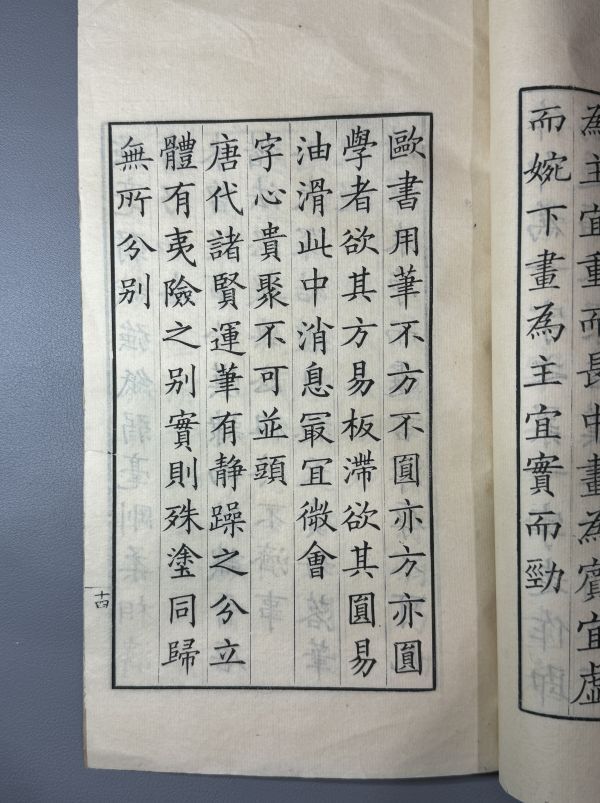 為主宜重而長中畫為賓宜虛
而婉下畫為主宜實而勁
歐書用筆不方不圓亦方亦圓
學者欲其方易板滯欲其圓易
油滑此中消息冣宜微會
字心貴聚不可並頭
唐代諸賢運筆有静躁之分立
體有夷險之别實則殊塗同歸
無所分别
十四